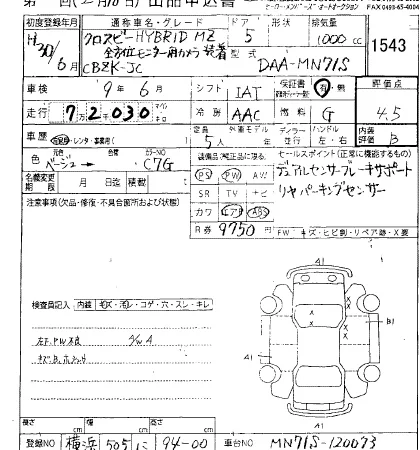 初度登録年月 H30/6月
通称車名・グレード クロスビー HYBRID MZ
全方位モニター用カメラ装着
CBZK-JC
ドア 5
形状
排気量 1000 cc
型式 DAA-MN71S
1543
車検 9年6月
シフト IAT
保証書 有・無
評価点 4.5
走行 72030 マイル キロ
冷房 AAC
燃料 G
車歴 自家用・レンタ・事業用( )
定員 5人
外車モデル 年
ディーラー 並行
ハンドル 左・右
内装評価 B
色 元色 ベージュ → 色替
カラーNO C7G
装備品(純正品に限る)
セールスポイント(正常に機能するもの)
PS PW AW
デュアルセンサーブレーキサポート
リヤパーキングセンサー
名義変更期限 月 日迄
積載
SR TV ナビ
注意事項(欠品・修復・不具合箇所および状態)
カワ エアB ABS
R券 9750円
FW キズ・ヒビ割・リペア跡・X要
検査員記入 内装 キズ・汚レ・コゲ・穴・スレ・キレ
A1
B1
A1
A1
長さ cm 幅 cm 高さ cm
登録NO 横浜 505 に 94-00
車台NO MN71S-120073